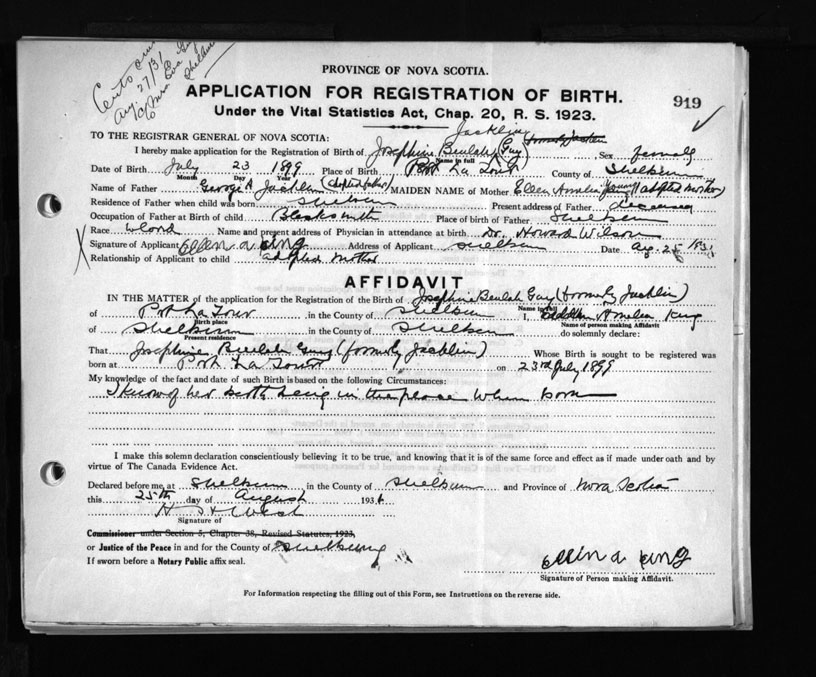 Aug. 27/31
PROVINCE OF NOVA SCOTIA.
APPLICATION FOR REGISTRATION OF BIRTH.
919
Under the Vital Statistics Act, Chap. 20, R. S. 1923.
Jacklin
TO THE REGISTRAR GENERAL OF NOVA SCOTIA:
I hereby make application for the Registration of Birth of Josephine Beulah Guy Sex female
Name in full
Date of Birth July 23 1899 Place of Birth Port La Tour County of Shelburne
Month Day Year
Name of Father George A Jacklin (adopted father) MAIDEN NAME of Mother Ellen Amelia (adopted mother)
Residence of Father when child was born Shelburne Present address of Father deceased
Occupation of Father at Birth of child Blacksmith Place of birth of Father Shelburne
Race Name and present address of Physician in attendance at birth Dr. Howard Wilson
Signature of Applicant Ellen A King Address of Applicant Shelburne Date Aug. 25 1931
Relationship of Applicant to child adopted mother
AFFIDAVIT
IN THE MATTER of the application for the Registration of the Birth of Josephine Beulah Guy (formerly Jacklin)
Name in full
of Port La Tour in the County of Shelburne I, Amelia King
Birth place Name of person making Affidavit
of Shelburne in the County of Shelburne do solemnly declare:
Present residence
That Josephine Beulah Guy (formerly Jacklin) Whose Birth is sought to be registered was
born at Port La Tour on 23rd July 1899
My knowledge of the fact and date of such Birth is based on the following Circumstances:
I know of her birth being in the place when born
I make this solemn declaration conscientiously believing it to be true, and knowing that it is of the same force and effect as if made under oath and by
virtue of The Canada Evidence Act.
Declared before me at Shelburne in the County of Shelburne and Province of Nova Scotia
this 25th day of August 1931
Signature of
Commissioner under Section 5, Chapter 38, Revised Statutes, 1923,
or Justice of the Peace in and for the County of Shelburne
If sworn before a Notary Public affix seal.
Ellen A King
Signature of Person making Affidavit.
For Information respecting the filling out of this Form, see Instructions on the reverse side.